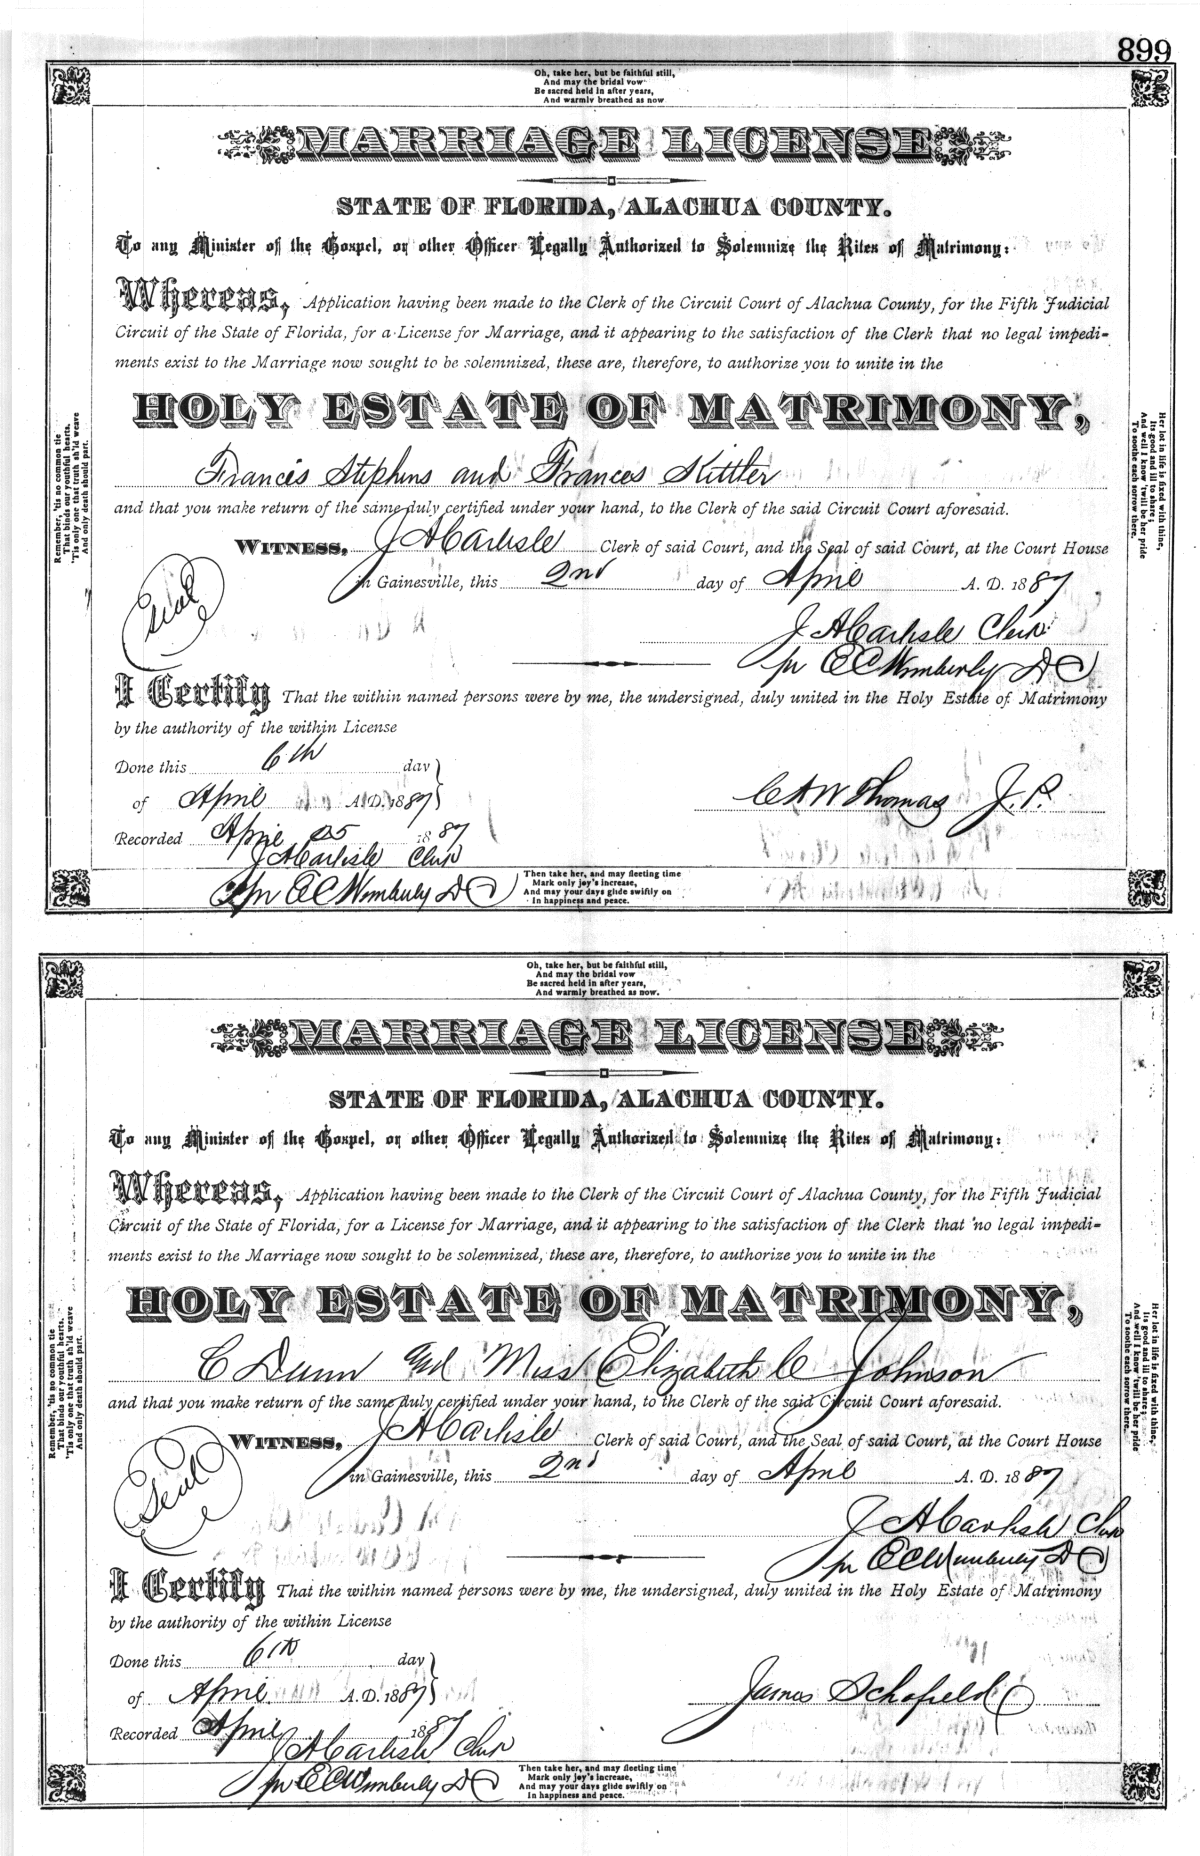 899
Oh, take her, but be faithful still,
And may the bridal vow
Be sacred held in after years,
And warmly breathed as now
MARRIAGE LICENSE
STATE OF FLORIDA, ALACHUA COUNTY.
To any Minister of the Gospel, or other Officer Legally Authorized to Solemnize the Rites of Matrimony:
Whereas, Application having been made to the Clerk of the Circuit Court of Alachua County, for the Fifth Judicial
Circuit of the State of Florida, for a License for Marriage, and it appearing to the satisfaction of the Clerk that no legal impedi-
ments exist to the Marriage now sought to be solemnized, these are, therefore, to authorize you to unite in the
HOLY ESTATE OF MATRIMONY,
Francis Stephins and Frances Kittler
and that you make return of the same duly certified under your hand, to the Clerk of the said Circuit Court aforesaid.
WITNESS, J A Carlisle Clerk of said Court, and the Seal of said Court, at the Court House
in Gainesville, this 2nd day of April A. D. 1887
Seal
J A Carlisle Clerk
pr E C Wimberly D C
I Certify That the within named persons were by me, the undersigned, duly united in the Holy Estate of Matrimony
by the authority of the within License
Done this 6th day
of April A.D. 1887
C A W Thomas J. P.
Recorded April 25 1887
J A Carlisle Clerk
pr E C Wimberly D C
Remember, 'tis no common tie
That binds our youthful hearts,
'Tis only one that truth sh'ld weave
And only death should part.
Her lot in life is fixed with thine,
Its good and ill to share;
And well I know 'twill be her pride
To soothe each sorrow there.
Then take her, and may fleeting time
Mark only joy's increase,
And may your days glide swiftly on
In happiness and peace.
Oh, take her, but be faithful still,
And may the bridal vow
Be sacred held in after years,
And warmly breathed as now.
MARRIAGE LICENSE
STATE OF FLORIDA, ALACHUA COUNTY.
To any Minister of the Gospel, or other Officer Legally Authorized to Solemnize the Rites of Matrimony:
Whereas, Application having been made to the Clerk of the Circuit Court of Alachua County, for the Fifth Judicial
Circuit of the State of Florida, for a License for Marriage, and it appearing to the satisfaction of the Clerk that no legal impedi-
ments exist to the Marriage now sought to be solemnized, these are, therefore, to authorize you to unite in the
HOLY ESTATE OF MATRIMONY,
C Dunn and Miss Elizabeth C Johnson
and that you make return of the same duly certified under your hand, to the Clerk of the said Circuit Court aforesaid.
WITNESS, J A Carlisle Clerk of said Court, and the Seal of said Court, at the Court House
in Gainesville, this 2nd day of April A. D. 1887
Seal
J A Carlisle Clerk
pr E C Wimberly D C
I Certify That the within named persons were by me, the undersigned, duly united in the Holy Estate of Matrimony
by the authority of the within License
Done this 6th day
of April A.D. 1887
James Schofield
Recorded April 1887
J A Carlisle Clerk
pr E C Wimberly D C
Remember, 'tis no common tie
That binds our youthful hearts.
'Tis only one that truth sh'ld weave
And only death should part.
Her lot in life is fixed with thine,
Its good and ill to share;
And well I know 'twill be her pride
To soothe each sorrow there.
Then take her, and may fleeting time
Mark only joy's increase,
And may your days glide swiftly on
In happiness and peace.